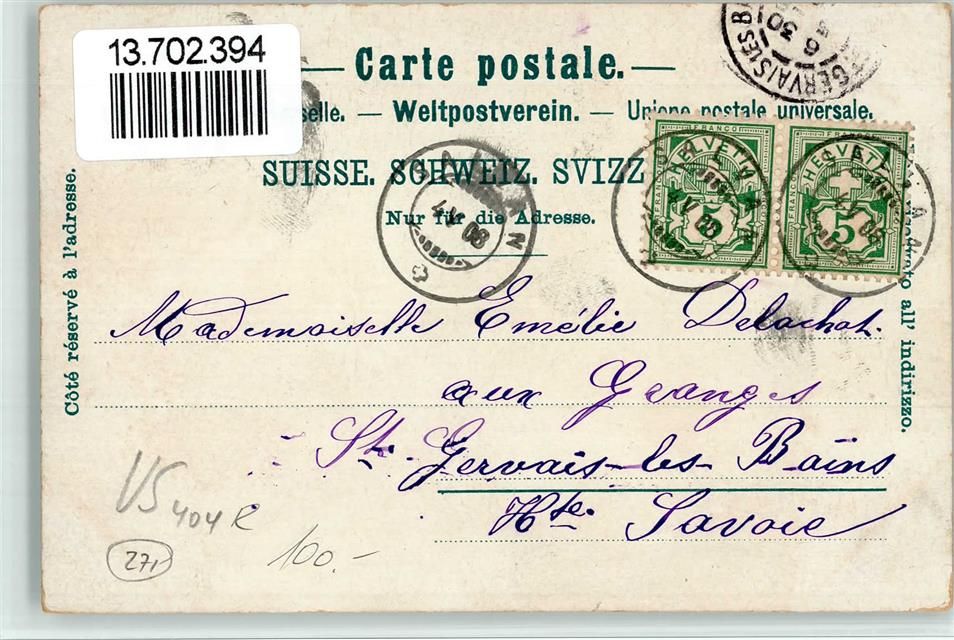 13.702.394
Carte postale.
selle. — Weltpostverein. — Unione postale universale.
SUISSE. SCHWEIZ. SVIZZ
Nur für die Adresse.
Côté réservé à l'adresse.
all' indirizzo.
FRANCO
HELVETIA
5
FRANCO
HELVETIA
5
4 V 08
Mademoiselle Emélie Delachat.
aux Granges
St. Gervais-les-Bains
Hte. Savoie
VS
404 R
271
100.-